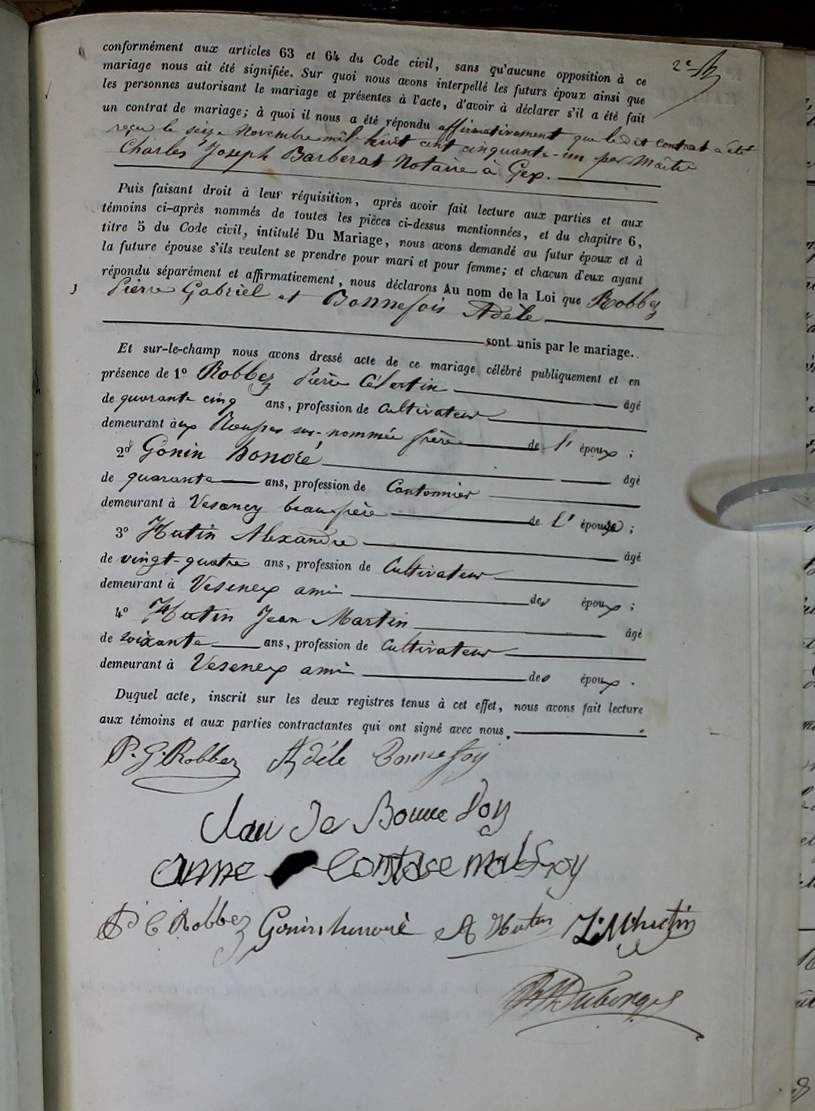 2e
conformément aux articles 63 et 64 du Code civil, sans qu'aucune opposition à ce
mariage nous ait été signifiée. Sur quoi nous avons interpellé les futurs époux ainsi que
les personnes autorisant le mariage et présentes à l'acte, d'avoir à déclarer s'il a été fait
un contrat de mariage; à quoi il nous a été répondu affirmativement que ledit contrat a été
reçu le seize Novembre mil huit cent cinquante-un par Maitre
Charles Joseph Barberat Notaire à Gex.
Puis faisant droit à leur réquisition, après avoir fait lecture aux parties et aux
témoins ci-après nommés de toutes les pièces ci-dessus mentionnées, et du chapitre 6,
titre 5 du Code civil, intitulé Du Mariage, nous avons demandé au futur époux et à
la future épouse s'ils veulent se prendre pour mari et pour femme; et chacun d'eux ayant
répondu séparément et affirmativement, nous déclarons Au nom de la Loi que Robbez
Pierre Gabriel et Bonnefois Adèle
sont unis par le mariage.
Et sur-le-champ nous avons dressé acte de ce mariage célébré publiquement et en
présence de 1o Robbez Pierre Célestin âgé
de quarante cinq ans, profession de Cultivateur
demeurant aux Rousses sus-nommée frère de l'époux;
2o Gonin honoré âgé
de quarante ans, profession de Cantonnier
demeurant à Vesancy beaufrère de l'épouse;
3o Hutin Alexandre âgé
de vingt-quatre ans, profession de Cultivateur
demeurant à Vesenex ami des époux;
4o Hutin Jean Martin âgé
de soixante ans, profession de Cultivateur
demeurant à Vesenex ami des époux.
Duquel acte, inscrit sur les deux registres tenus à cet effet, nous avons fait lecture
aux témoins et aux parties contractantes qui ont signé avec nous.
P. G. Robbez Adéle Bonnefoy
Clau De Bonne foy
anne
P C Robbez Gonin honoré A Hutin J M hutin